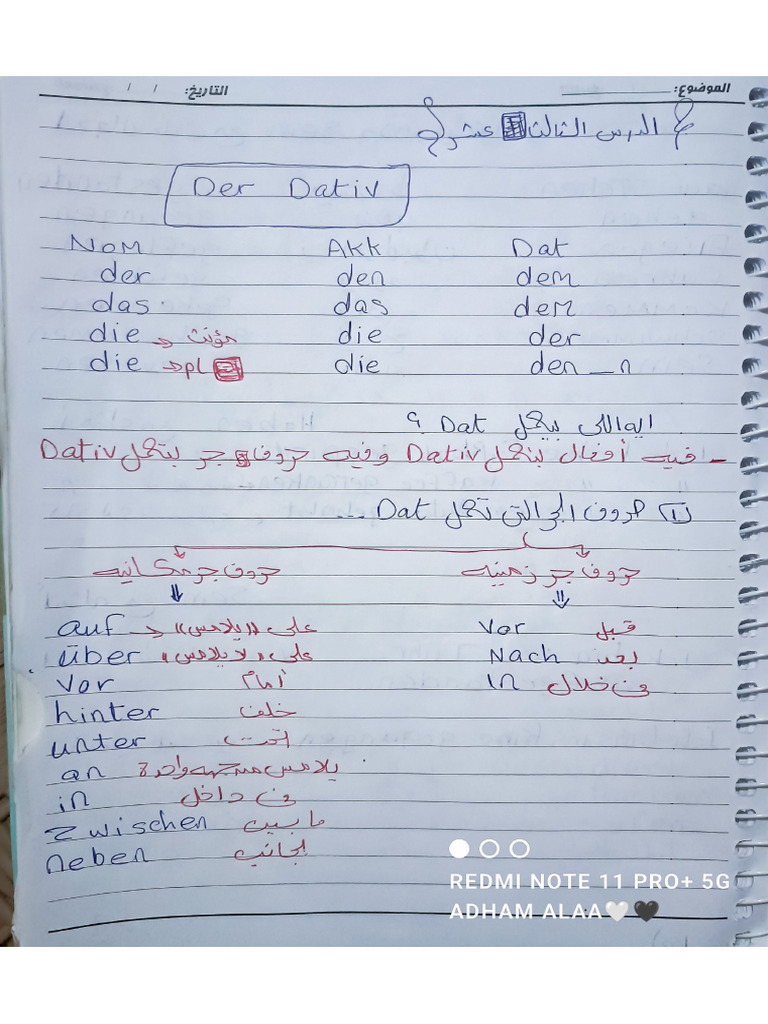 الموضوع: التاريخ: / /
الدرس الثالث عشر
Der Dativ
Nom Akk Dat
der den dem
das das dem
die → مؤنث die der
die → pl die den _ n
ايه اللى بيعمل Dat ؟
- فيه أفعال بتعمل Dativ وفيه حروف جر بتعمل Dativ
1 حروف الجر التى تعمل Dat ...
حروف جر زمنيه حروف جر مكانيه
auf → على "يلامس" Vor قبل
über على "لا يلامس" Nach بعد
Vor أمام in فى خلال
hinter خلف
unter تحت
an يلامس من جهه واحدة
in فى داخل
zwischen ما بين
neben بجانب
REDMI NOTE 11 PRO+ 5G
ADHAM ALAA🤍🖤